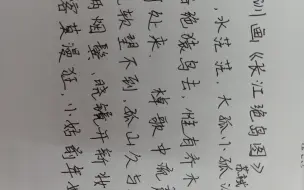 训画《长江绝岛图》
苏轼
,水茫茫,大孤小孤
绝猿鸟去,惟有乔木
何处来.棹歌中流
软望不到.孤山久与
两烟鬟,晓镜开新妆
客莫漫狂.小姑前年